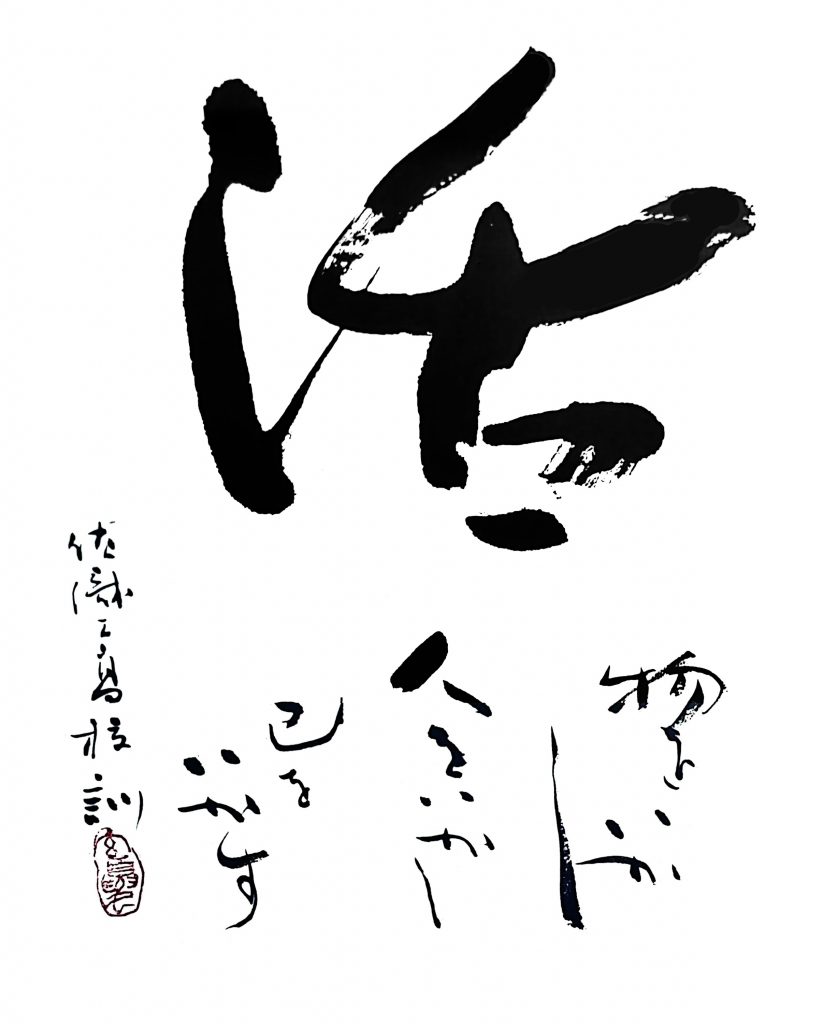 活
物をいかし
人をいかし
己をいかす
佐織工高校訓